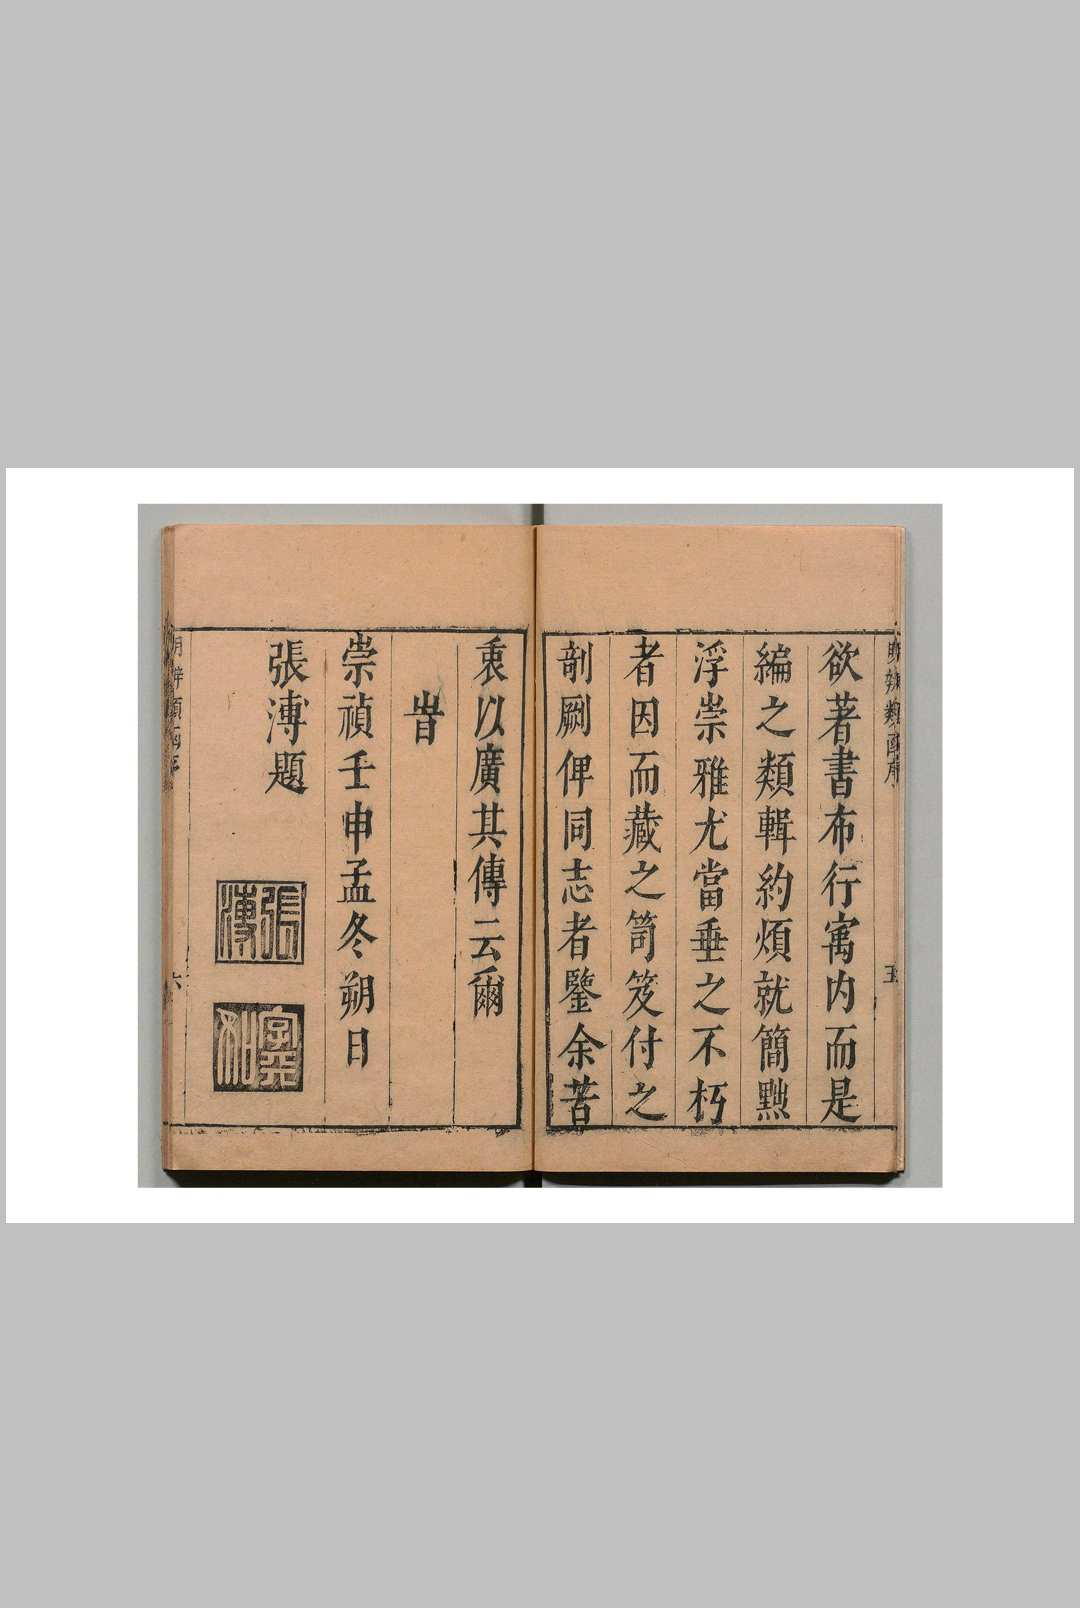 欲著書布行寓内而是
編之類輯約煩就簡黜
浮崇雅尤當垂之不朽
者因而藏之笥笈付之
剞劂俾同志者鑒余苦
五
衷以廣其傳云爾
旹
崇禎壬申孟冬朔日
張溥題
張溥
六